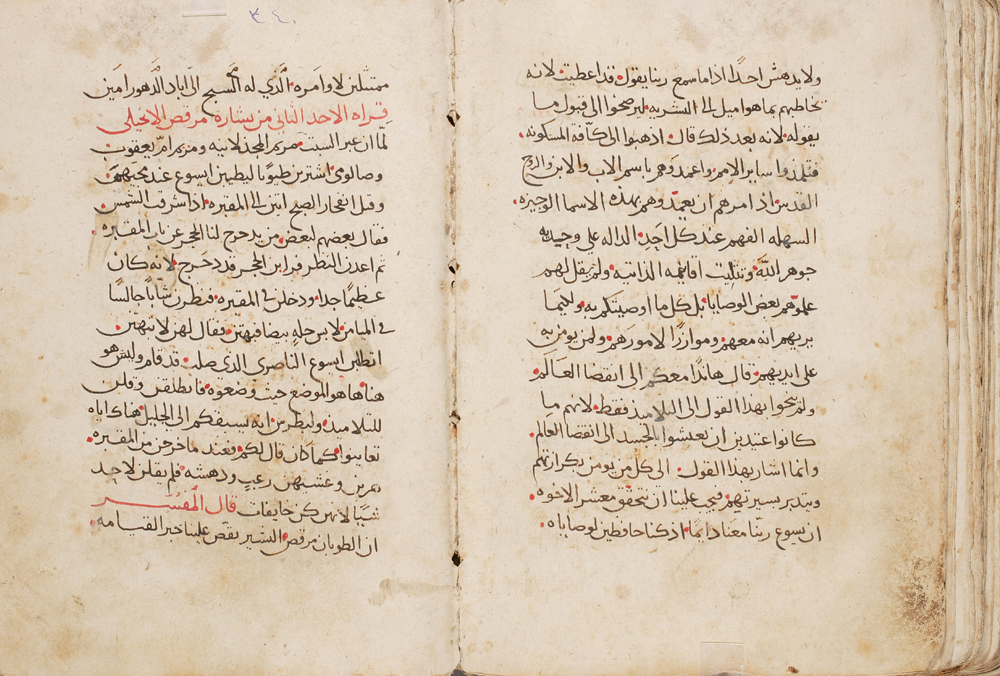 ولا يدهش احدًا اذا ما سمع ربنا يقول قد اعطيت لانه
يخاطبهم بما هو اميل الى البشريه ليرضخوا الى قبول ما
يقوله لانه بعد ذلك قال اذهبوا الى كافة المسكونه
فتلمذوا ساير الامم واعمدوهم باسم الاب والابن والروح
القدس اذ امرهم ان يعمدوهم بهذه الاسما الوجيزه
السهله الفهم عند كل احد الداله على وحيديه
جوهر الله وتثليث اقانيمه الذاتيه ولم يقل لهم
علموهم بعض الوصايا بل كل ما اوصيتكم به ولكيما
يريهم انه معهم وموازرًا لامورهم ولمن يومن به
على ايديهم قال هاندا معكم الى انقضا العالم
ولم ينحوا بهذا القول الى التلاميد فقط لانهم ما
كانوا عتيدين ان يعيشوا بالجسد الى انقضا العالم
وانما اشار بهذا القول الى كل من يومن بكرازتهم
ويتدبر بسيرتهم فيجب علينا ان نتحقق معشر الاخوه
ان يسوع ربنا معنا دايمًا اذ كنا حافظين لوصاياه
٣٤٠
ممتثلين لاوامره الذي له السبح الى اباد الدهور امين
قراه الاحد الثاني من بشارة مرقص الانجيلي
لما ان عبر السبت مريم المجدلانيه ومريم ام يعقوب
وصالومى اشترين طيوبًا ليطيبن ايسوع عند مجيهن
وقبل انفجار الصبح اتين الى المقبره اذ اشرقت الشمس
فقال بعضهم لبعض من يدحرج لنا الحجر عن باب المقبره
ثم اعدن النظر فراين الحجر قد دحرج لانه كان
عظيمًا جدا ودخلن الى المقبره فنظرن شابًا جالسًا
في الميامن لابس حله بيضا فبهتن فقال لهن لا تبهتن
اتطلبن ايسوع الناصرى الذى صلب قد قام وليس هو
هنا ها هو الموضع حيث وضعوه فانطلقن وقلن
للتلاميذ ولبطرس انه يسبقكم الى الجليل هناك اياه
تعاينوا كما كان قال لكم فعند ما خرجن من المقبره
هربن وغشيهن رعب ودهشه فلم يقلن لاحد
شيًا لانهن كن خايفات قال المفسر
ان الطوبان مرقص البشير يقص علينا خبر القيامه